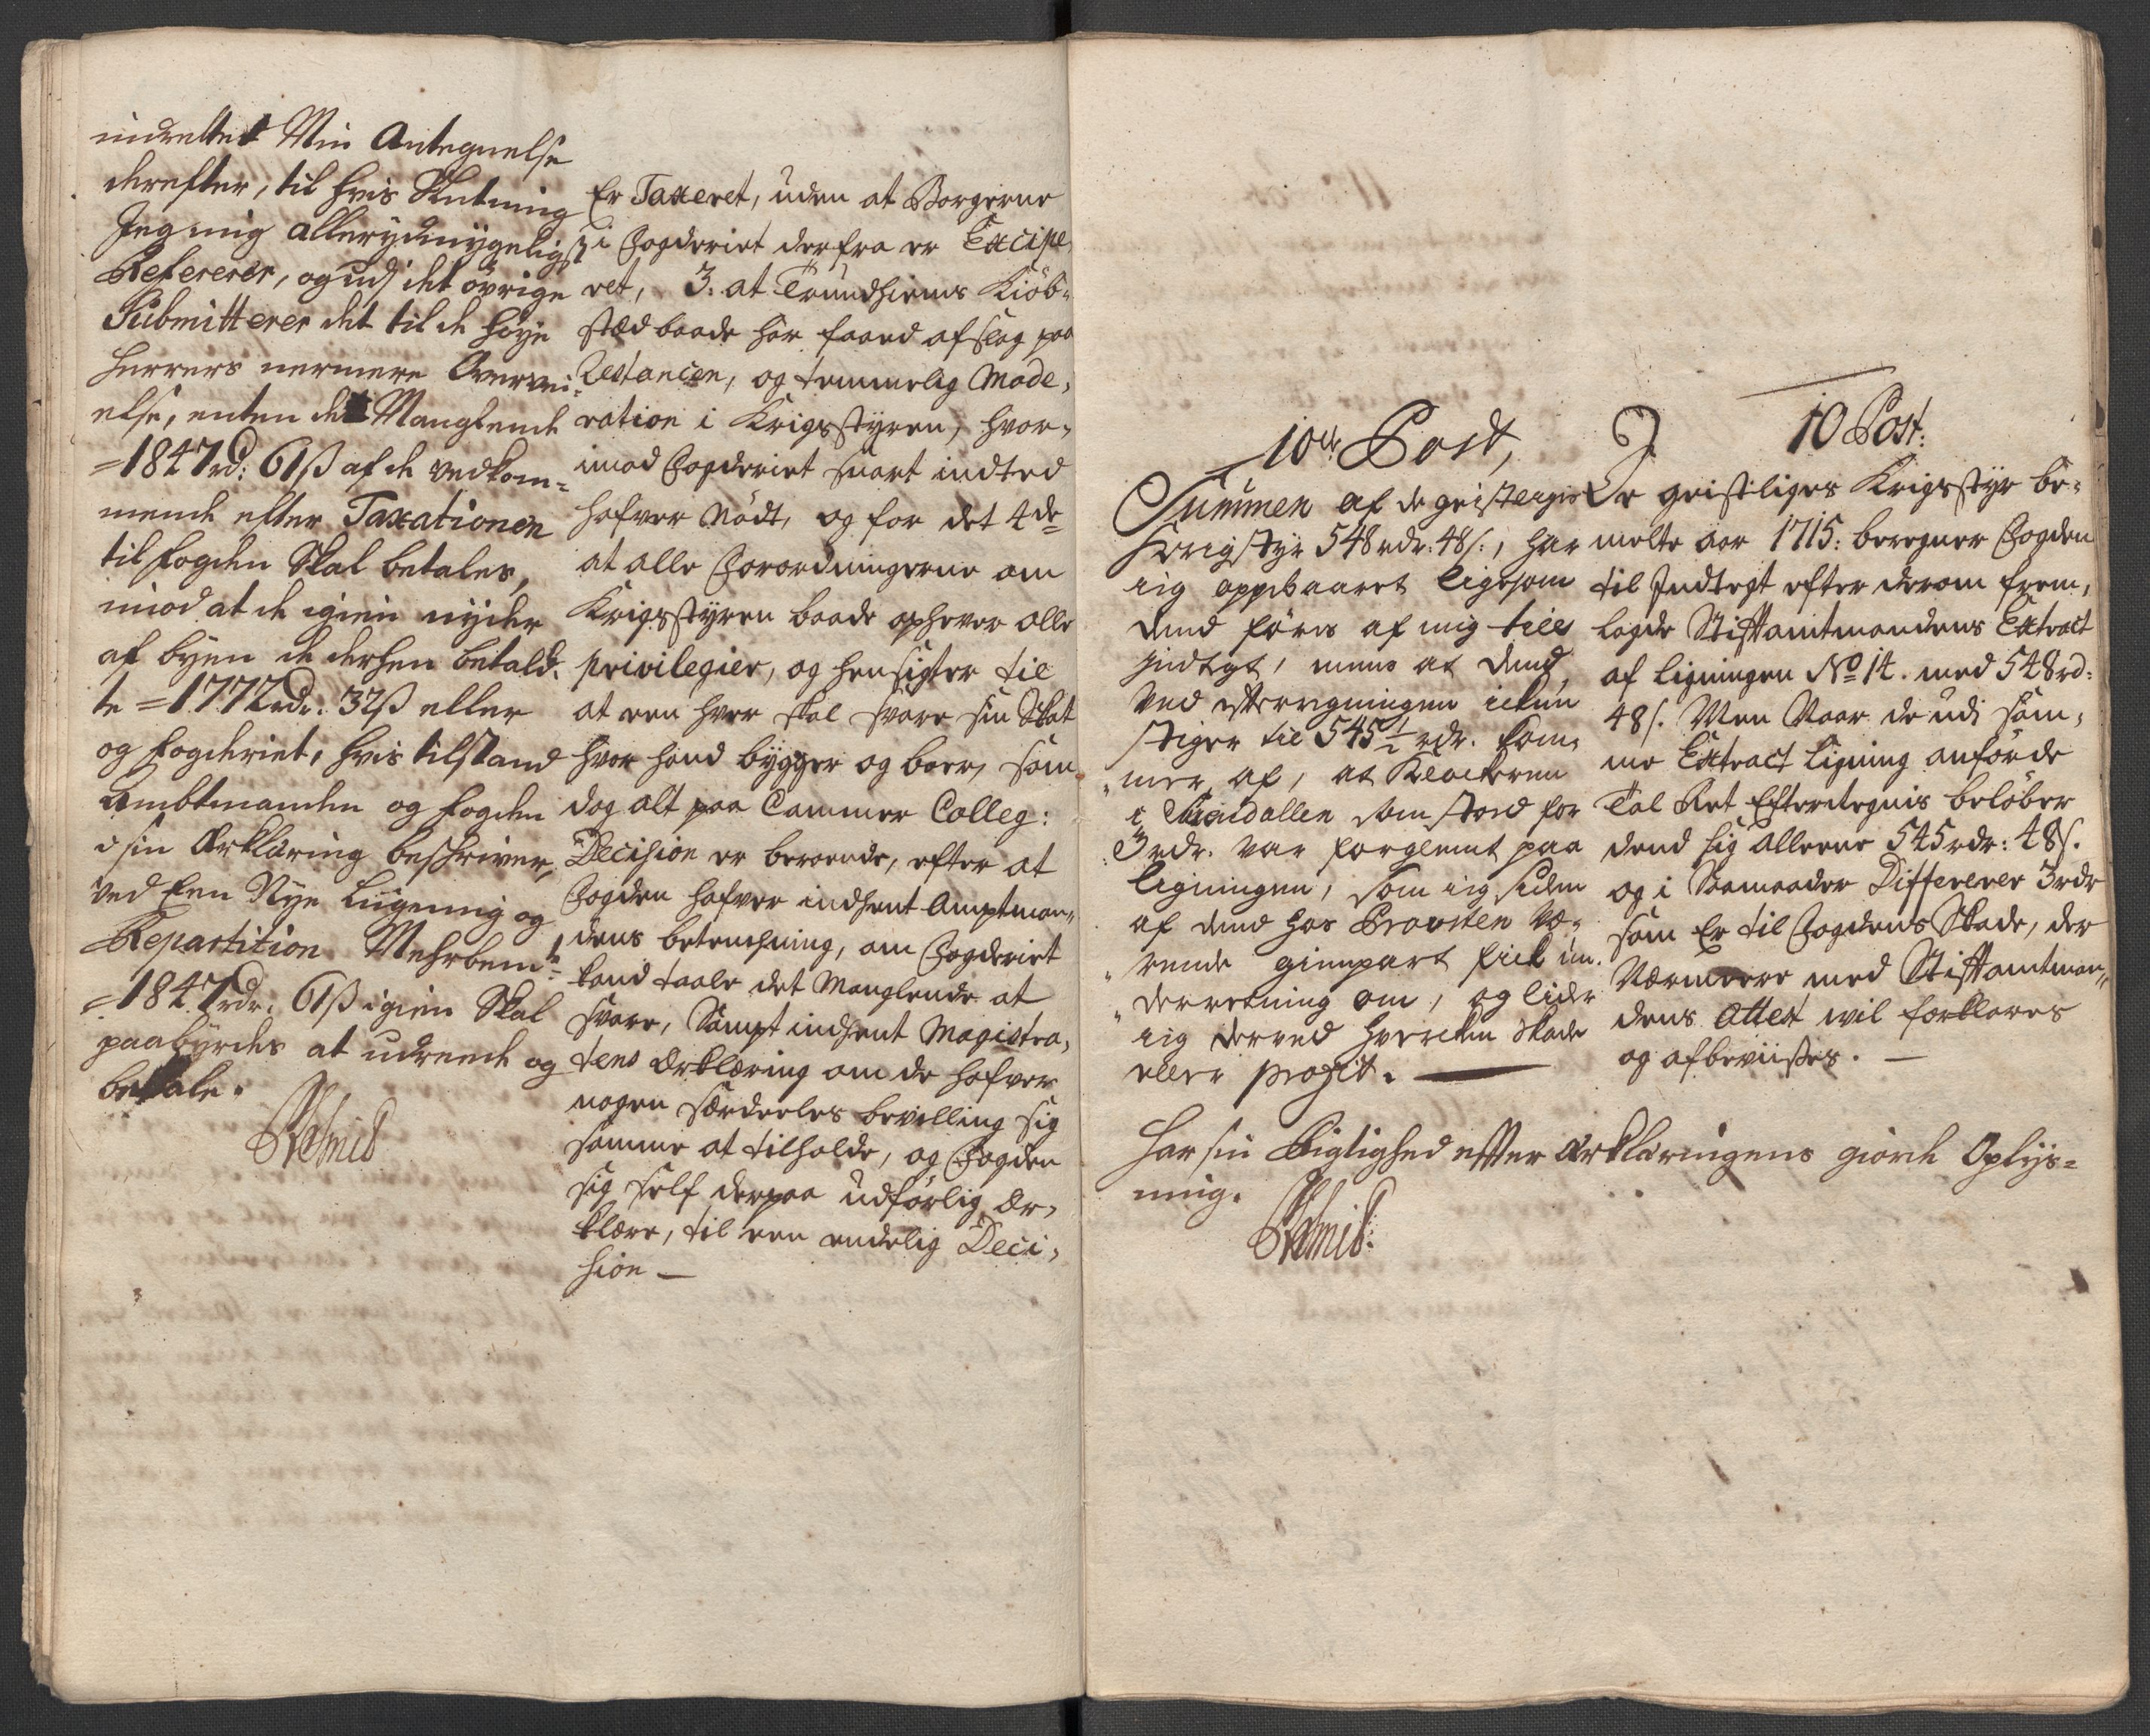 indrettet Min Antegnelse
derefter, til hvis Slutning
Jeg mig allerydmygeligst
Refererer, og udj det övrige
Submitterer det til de høye
Herrers nermere Overvei-
else, enten det Manglende
=1847rd: 61ß af de vedkom-
mende efter Taxationen
til fogden Skal betales,
imod at de igien nyder
af byen de derhen betal-
te =1772rdr: 32ß eller
og fogderiet, hvis tilstand
Ambtmanden og fogden
i sin Erklæring beskriver,
ved Een Nye Ligning og
Repartition Mehrbemte
=1847rdr: 61ß igien Skal
paabyrdes at udreede og
betale.
Er Taxeret, uden at Borgerne
i Fogderiet derfra er Excipe-
ret, 3. at Trundhiems Kiöb-
stæd baade har faaed afslag paa
Restancen, og temmelig Mode-
ration i Krigsstyren, hvor-
imod Fogderiet snart indted
hafver Nödt, og for det 4de
at alle Forordningerne om
Krigsstyren baade ophever alle
privilegier, og hensigter til
at een hver skal svare sin Skat
hvor hand bygger og boer, som
dog alt paa Cammer Colleg:
Decision er beroende, efter at
Fogden hafver indhent Amptman-
dens betenchning, om Fogderiet
kand taale det Manglende at
svare, Sampt indhent Magistra-
tens Erklæring om de hafver
nogen særdeeles bevilling sig
samme at tilholde, og Fogden
sig self derpaa udförlig Er-
klære, til een endelig Deci-
sion —
10de Post,
Summen af de geistliges
Krigstyr 548 rdr: 48 s:, har
iig oppebaaret ligesom
dend föres af mig till
Indtegt, mens at dend
ved efterregningen ickun
stiger til 545 ½ rdr. kom-
mer af, at Klockeren
i som stoed for
3 rdr. var forglemt paa
ligningen, som iig siden
af dend hos Provsten væ-
rende gienpart fick un-
derretning om, og lider
iig derved hvercken Skade
eller profit. —
10 Post:
De geistliges Krigsstyr be-
melte aar 1715: beregner Fogden
til Indtegt efter derom frem-
lagde Stiftamtmandens Extract
af Ligningen No 14. med 548 rd:
48 s. Men Naar de udi sam-
me Extract Ligning anförde
Tal Ret Efterregnis belöber
dend sig alleene 545 rdr: 48 s.
og i Saamaader Differerer 3 rdr
som Er til Fogdens Skade, der
Nærmeere med Stiftamtman-
dens Attest vil forklares
og afbeviises. —
Har sin Rigtighed efter Erklæringens giorde Oplys-
ning.